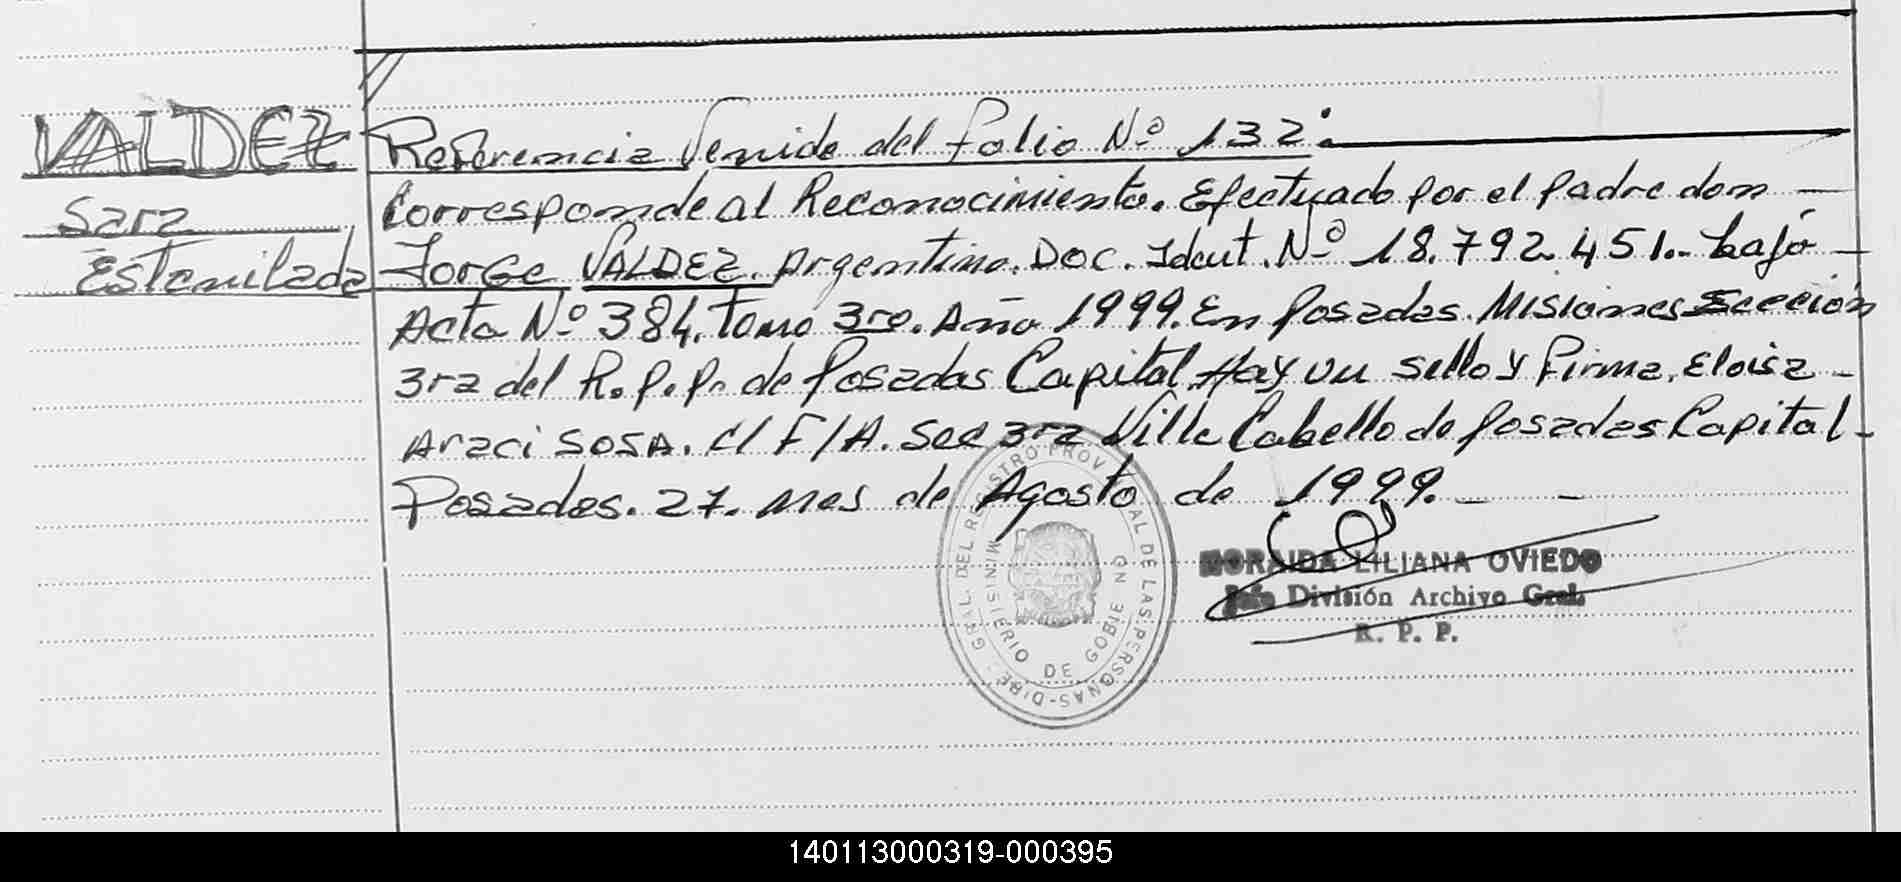 VALDEZ
Sara
Estanilada
Referencia Venida del Folio Nº 132:
Corresponde al Reconocimiento. Efectuado por el padre don
Jorge VALDEZ. Argentino. Doc. Ident. Nº 18.792.451.- bajo
Acta Nº 384. Tomo 3ro. Año 1999. En Posadas. Misiones Sección
3ra del R.P.P. de Posadas Capital. Hay un sello y firma. Eloisa
Araci SOSA. C/ F/A. Sec 3ra Villa Cabello de Posadas Capital-
Posadas. 27. mes de Agosto de 1999.-
GRAL. DEL REGISTRO PROVINCIAL DE LAS PERSONAS-DIREC.
MINISTERIO DE GOBIERNO
LILIANA OVIEDO
Jefe División Archivo Gral.
R. P. P.
140113000319-000395